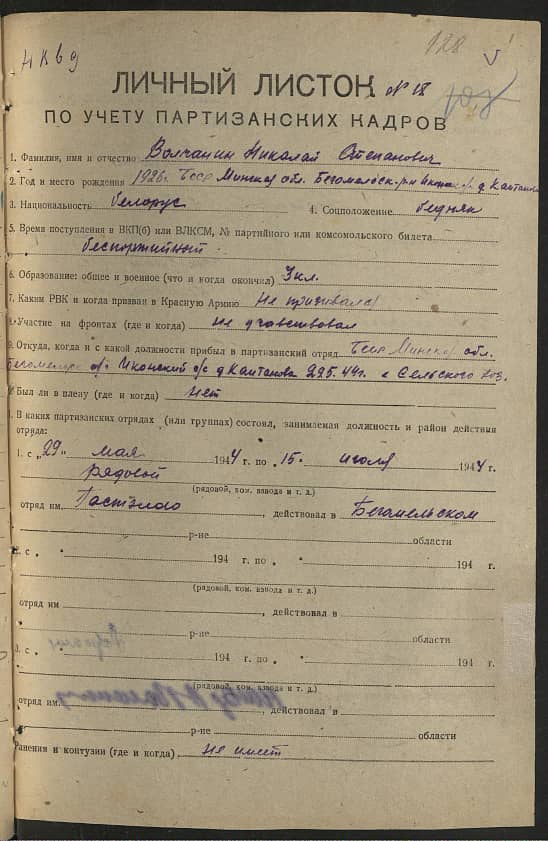 НКВД
128
ЛИЧНЫЙ ЛИСТОК № 18
ПО УЧЕТУ ПАРТИЗАНСКИХ КАДРОВ
1. Фамилия, имя и отчество Волчанин Николай Степанович
2. Год и место рождения 1926г. Бсср Минской обл. Бегомельск. р-н д. Каптанова
3. Национальность белорус 4. Соцположение бедняк
5. Время поступления в ВКП(б) или ВЛКСМ, № партийного или комсомольского билета
беспортийный
6. Образование: общее и военное (что и когда окончил) 3 кл.
7. Каким РВК и когда призван в Красную Армию не призывался
8. Участие на фронтах (где и когда) не учавствовал
9. Откуда, когда и с какой должности прибыл в партизанский отряд Бсср Минской обл.
Иконский с/с д Каптанова 29 5. 44г. с Сельского хоз.
Был ли в плену (где и когда) нет
1. В каких партизанских отрядах (или группах) состоял, занимаемая должность и район действия
отряда:
1. с „29" мая 1944 г. по „15" июля 1944 г.
рядовой
(рядовой, ком. взвода и т. д.)
отряд им. Гастэлло, действовал в Бегомельском
р-не области
2. с „ " 194 г. по „ " 194 г.
(рядовой, ком. взвода и т. д.)
отряд им , действовал в
р-не области
3. с „ " 194 г. по „ " 194 г.
(рядовой, ком. взвода и т. д.)
отряд им. , действовал в
р-не области
Ранения и контузии (где и когда) не имеет